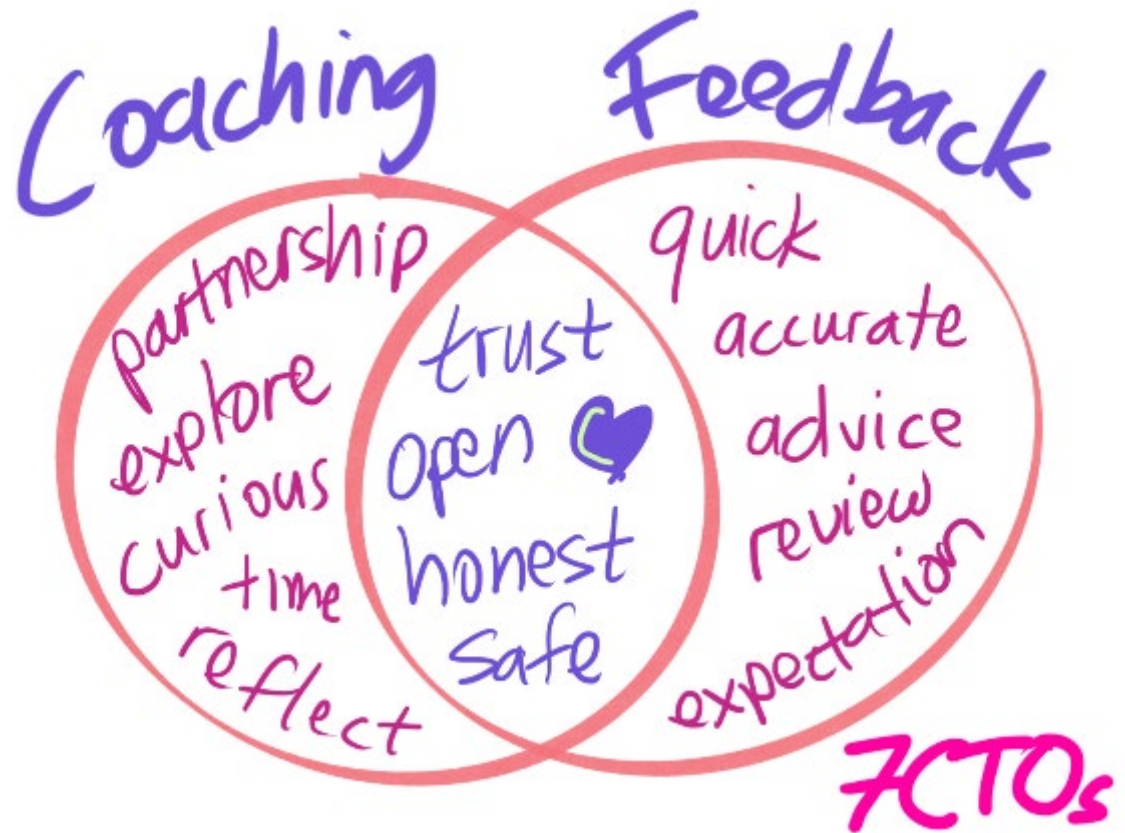 Coaching
Feedback
partnership
explore
curious
time
reflect
trust
open
honest
safe
quick
accurate
advice
review
expectation
7CTOs